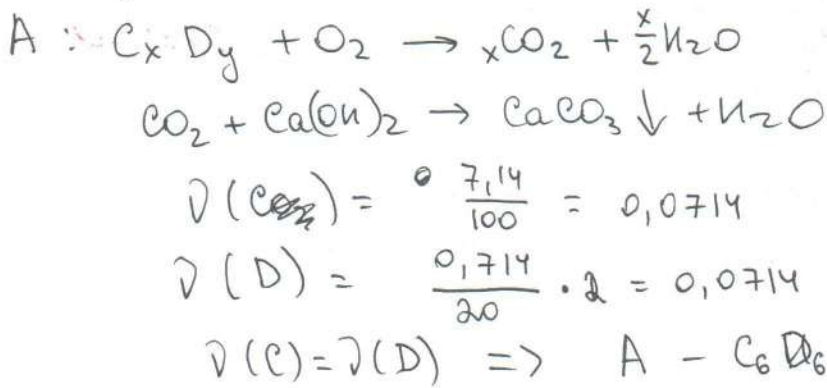 A : CₓDᵧ + O₂ → ₓCO₂ + x/2 H₂O
CO₂ + Ca(OH)₂ → CaCO₃ ↓ + H₂O
ν(C) = 7,14/100 = 0,0714
ν(D) = 0,714/20 · 2 = 0,0714
ν(C) = ν(D) => A - C₆D₆